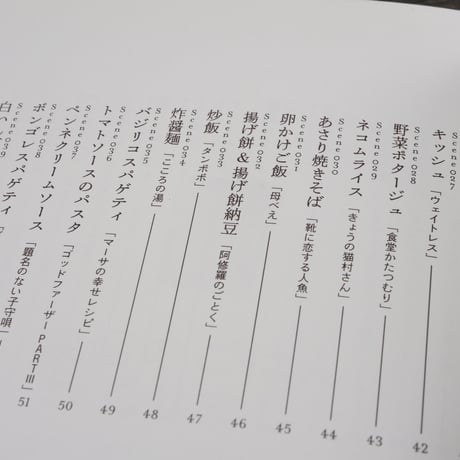 Scene027
キッシュ「ウェイトレス」 42
Scene028
野菜ポタージュ「食堂かたつむり」 43
Scene029
ネコムライス「きょうの猫村さん」 44
Scene030
あさり焼きそば「靴に恋する人魚」 45
Scene031
卵かけご飯「母べえ」 46
Scene032
揚げ餅&揚げ餅納豆「阿修羅のごとく」 47
Scene033
炒飯「タンポポ」 48
Scene034
炸醤麺「こころの湯」 49
Scene035
バジリコスパゲティ「マーサの幸せレシピ」 50
Scene036
トマトソースのパスタ「ゴッドファーザーPARTⅢ」 51
Scene037
ペンネクリームソース「題名のない子守唄」
Scene038
ボンゴレスパゲティ